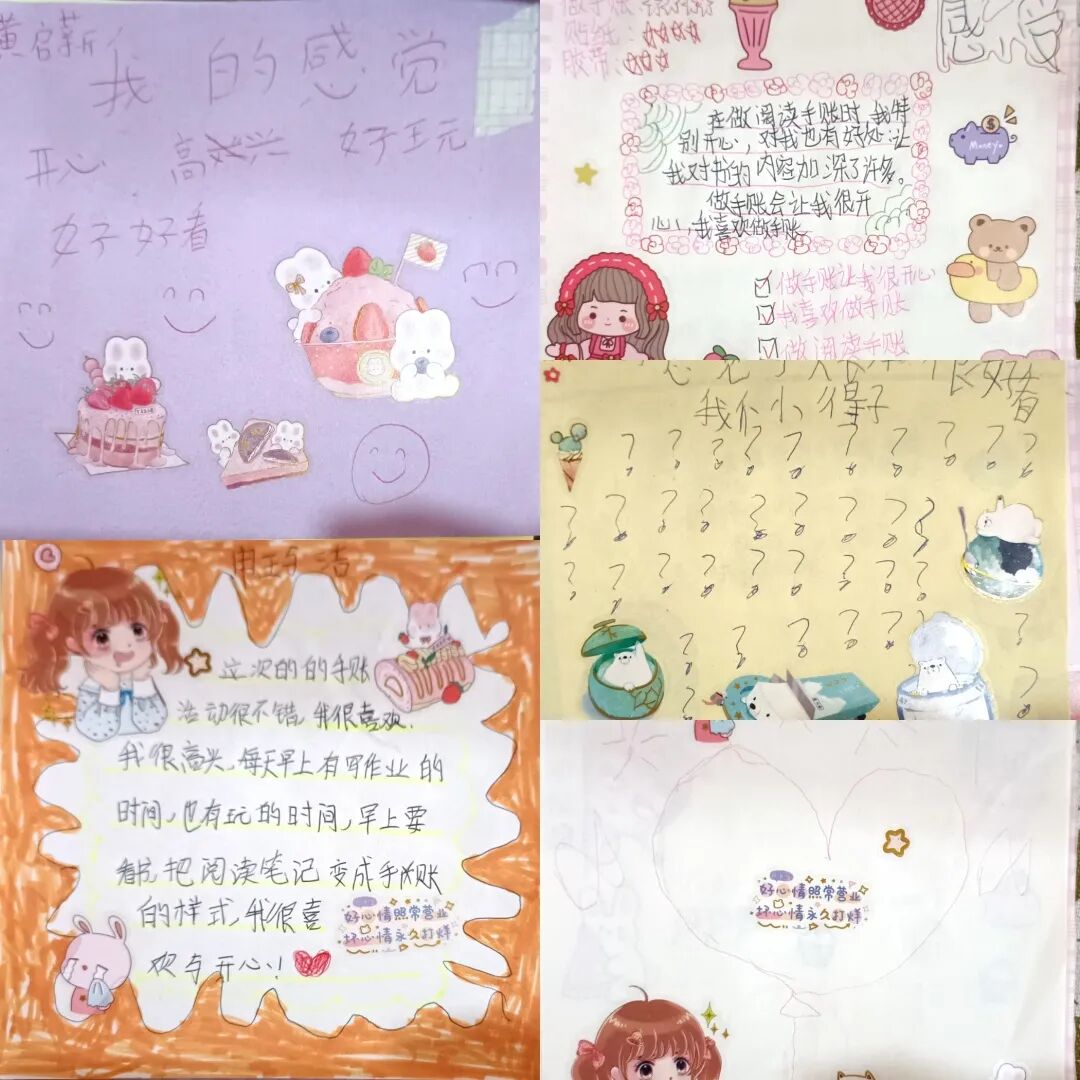 黄启薪
我的感觉
开心 高兴 好玩
好好看
做手账
贴纸:
胶带:
感受
在做阅读手账时,我特
别开心,对我也有好处让
我对书的内容加深了许多。
做手账会让我很开
心,我喜欢做手账
做手账让我很开心
我喜欢做手账
做阅读手账
Money
很好看
我们小组子
洁
这次的的手账
活动很不错,我很喜欢.
我很高兴,每天早上有写作业的
时间,也有玩的时间,早上要
看完把阅读笔记变成手账
的样式,我很喜
欢与开心!
好心情照常营业
坏心情永久打烊
好心情照常营业
坏心情永久打烊